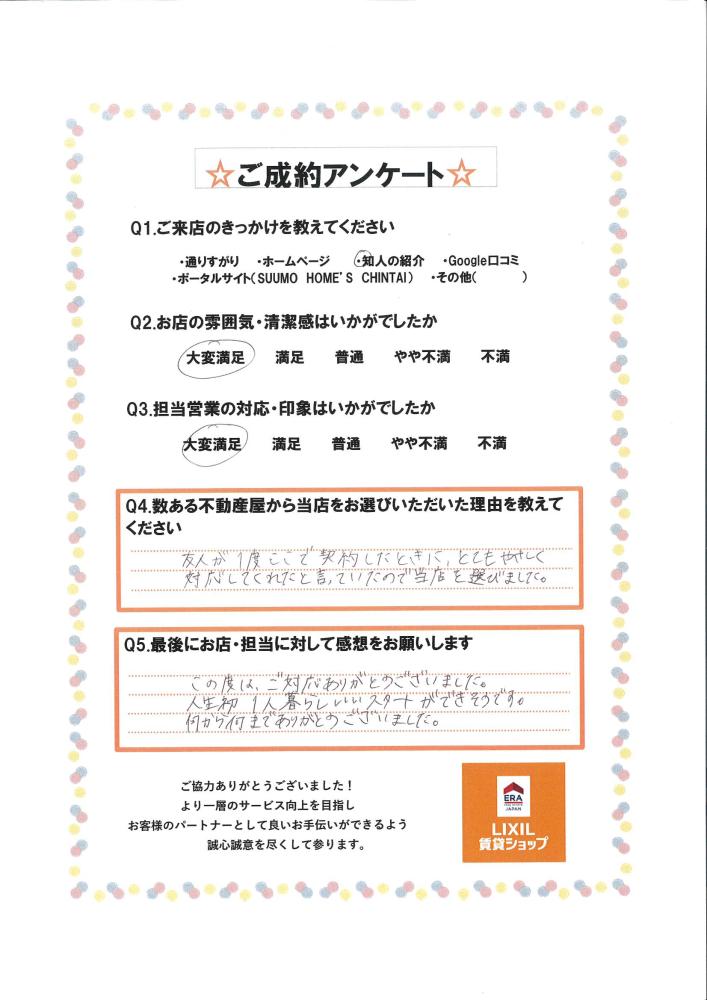 ☆ご成約アンケート☆
Q1.ご来店のきっかけを教えてください
・通りすがり ・ホームページ ・知人の紹介 ・Google口コミ
・ポータルサイト(SUUMO HOME'S CHINTAI) ・その他( )
Q2.お店の雰囲気・清潔感はいかがでしたか
大変満足 満足 普通 やや不満 不満
Q3.担当営業の対応・印象はいかがでしたか
大変満足 満足 普通 やや不満 不満
Q4.数ある不動産屋から当店をお選びいただいた理由を教えて
ください
友人が1度ここで契約したときに、とてもやさしく
対応してくれたと言っていたので当店を選びました。
Q5.最後にお店・担当に対して感想をお願いします
この度は、ご対応ありがとうございました。
人生初1人暮らしいいスタートができそうです。
何から何までありがとうございました。
ご協力ありがとうございました!
より一層のサービス向上を目指し
お客様のパートナーとして良いお手伝いができるよう
誠心誠意を尽くして参ります。
ERA
JAPAN
LIXIL
賃貸ショップ